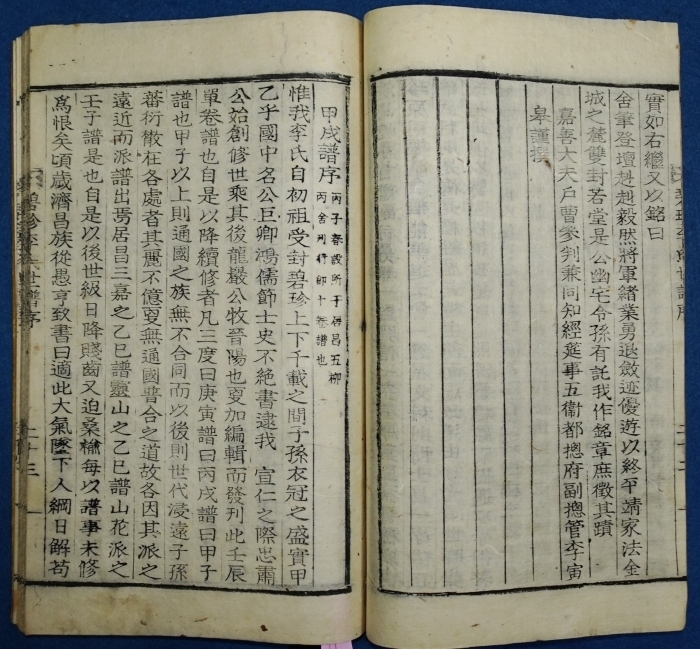 實如右繼又以銘曰
舍筆登壇赳赳毅然將軍緖業勇退斂迹優遊以終平靖家法金
城之麓雙封若堂是公幽宅令孫有託我作銘章庶徵其蹟
嘉善大夫戶曹參判兼同知經筵事五衛都摠府副摠管李寅
皐謹撰
甲戌譜序
丙子春設所于居昌五柳
丙舍刊行即十卷譜也
惟我李氏自初祖受封碧珍上下千載之間子孫衣冠之盛實甲
乙乎國中名公巨卿鴻儒節士史不絶書逮我 宣仁之際忠肅
公始創修世乘其後龍巖公牧晉陽也更加編輯而發刊此壬辰
單卷譜也自是以降續修者凡三度曰庚寅譜曰丙戌譜曰甲子
譜也甲子以上則通國之族無不合同而以後則世代浸遠子孫
蕃衍散在各處者其麗不億更無通國普合之道故各因其派之
遠近而派譜出焉居昌三嘉之乙巳譜靈山之乙巳譜山花派之
壬子譜是也自是以後世級日降賤齒又迫桑楡每以譜事未修
爲恨矣頃歲濟昌族從愚亨致書曰適此大氣墜下人綱日解苟
碧珍李氏世譜序
二十三